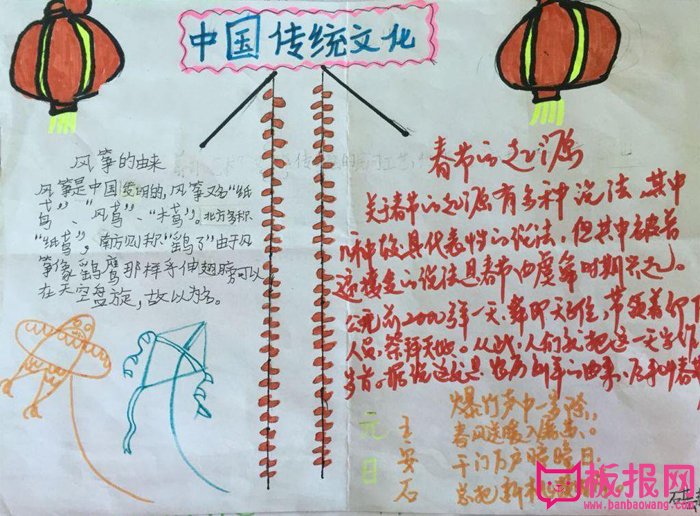 中国传统文化
风筝的由来
风筝是中国发明的,风筝又名"纸
鸢"、"风鸢"、"木鸢"。北方多称
"纸鸢",南方则称"鹞子"由于风
筝像鹞鹰那样等伸翅膀可以
在天空盘旋,故以为名。
春节的起源
关于春节的起源有多种说法,其中
几种较具代表性的说法,但其中被普
遍接受的说法是春节由虞舜时期兴起。
公元前2000多年一天,舜即天子位,带领着
人员,祭拜天地。从此,人们就把这一天
岁首。据说这就是农历新年的由来,
元日
王安石
爆竹声中一岁除,
春风送暖入屠苏。
千门万户曈曈日,
总把新桃
板报网
www.banbaowang.com